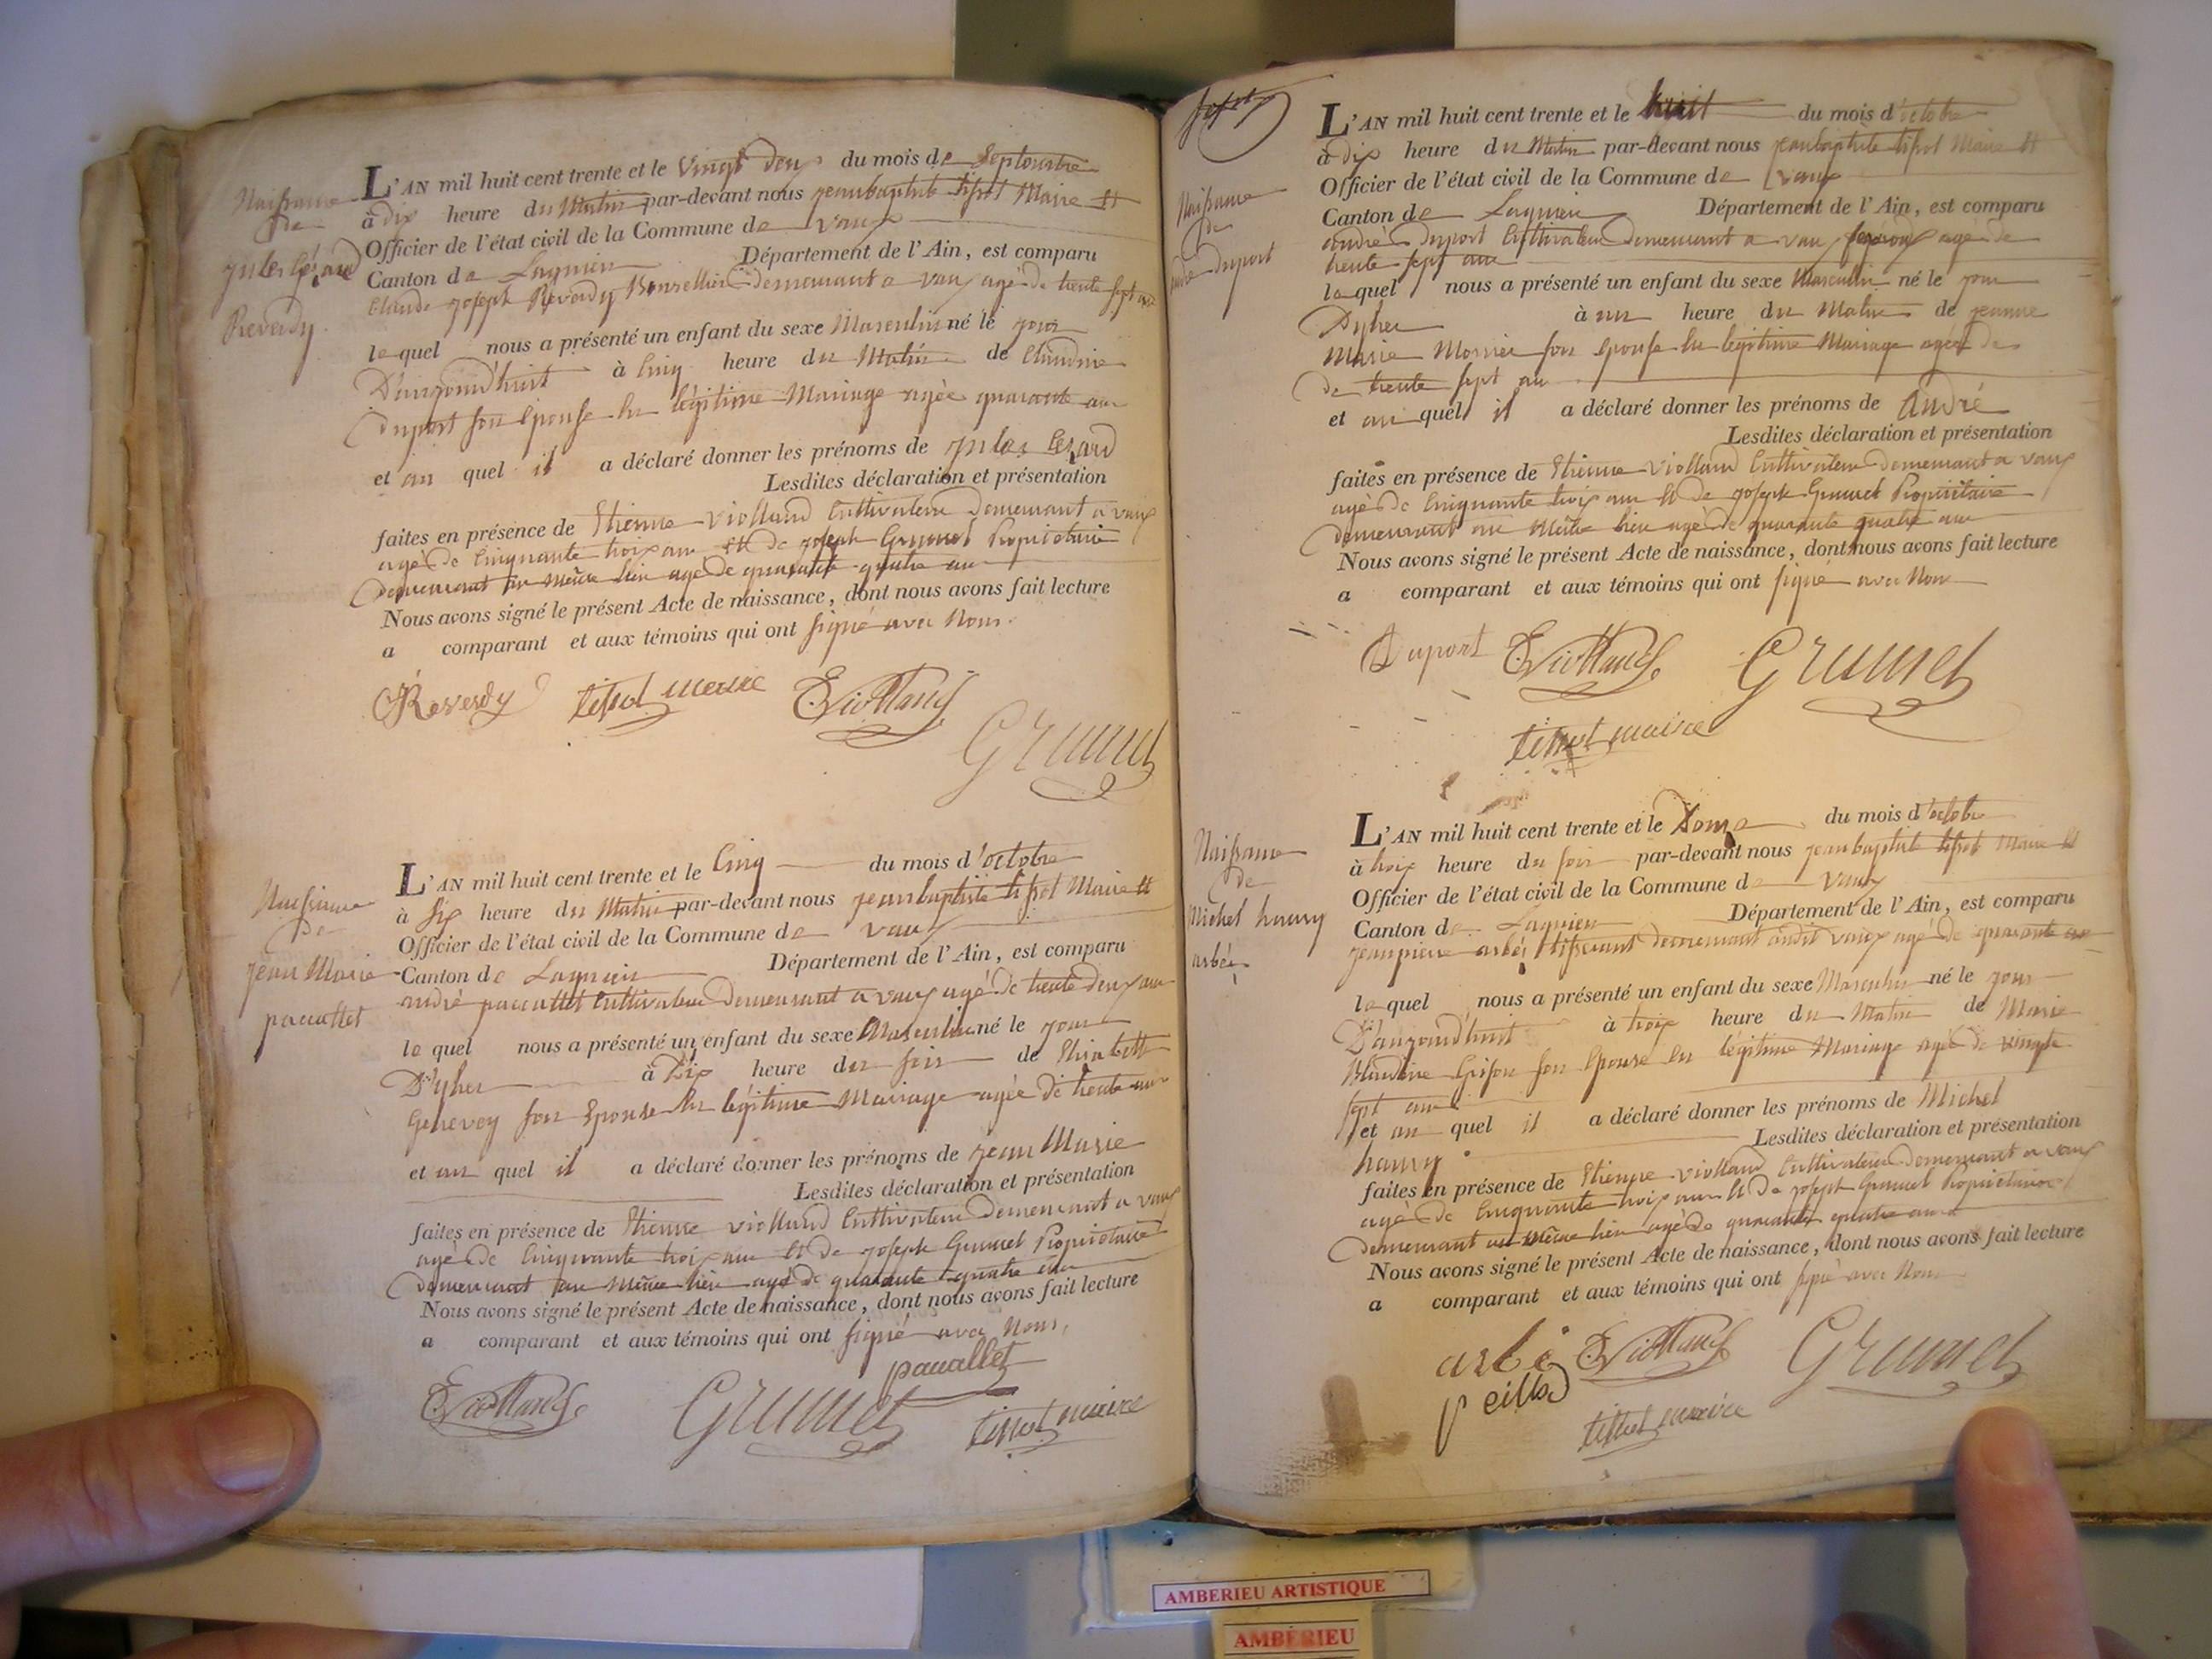 Naissance
de
jules Cézard
Reverdy.
L'AN mil huit cent trente et le vingt deux du mois de Septembre
à dix heure du Matin par-devant nous jeanbaptiste tissot Maire et
Officier de l'état civil de la Commune de vaux
Canton de Lagnieu Département de l'Ain, est comparu
Claude joseph Reverdy demeurant a vaux agé de trente sept ans
lequel nous a présenté un enfant du sexe Masculin né le jour
D'aujourd'huit à Cinq heure du Matin de Claudine
Duport son Epouse en légitime Mariage agée quarante ans
et au quel il a déclaré donner les prénoms de jules Cezard
Lesdites déclaration et présentation
faites en présence de Etienne violland Cultivateur demeurant a vaux
agé de Cinquante trois ans et de joseph Grumet Propriétaire
demeurant au même lieu agé de quarante quatre ans
Nous avons signé le présent Acte de naissance, dont nous avons fait lecture
a comparant et aux témoins qui ont signé avec Nous.
Reverdy tissot maire E Violland
Grumet
Naissance
de
jean Marie
paccallet
L'AN mil huit cent trente et le Cinq du mois d'octobre
à six heure du Matin par-devant nous jeanbaptiste tissot Maire et
Officier de l'état civil de la Commune de vaux
Canton de Lagnieu Département de l'Ain, est comparu
andré paccallet Cultivateur demeurant a vaux agé de trente deux ans
lequel nous a présenté un enfant du sexe Masculin né le jour
D'yher à dix heure du soir de Elisabeth
Genevey son Epouse en légitime Mariage agée de trente ans
et au quel il a déclaré donner les prénoms de jean Marie
Lesdites déclaration et présentation
faites en présence de Etienne violland Cultivateur demeurant a vaux
agé de Cinquante trois ans et de joseph Grumet Propriétaire
demeurant au même lieu agé de quarante quatre ans
Nous avons signé le présent Acte de naissance, dont nous avons fait lecture
a comparant et aux témoins qui ont signé avec Nous,
paccallet
E Violland Grumet tissot maire
Naissance
de
andré duport
L'AN mil huit cent trente et le huit du mois d'octobre
à dix heure du Matin par-devant nous jeanbaptiste tissot Maire et
Officier de l'état civil de la Commune de vaux
Canton de Lagnieu Département de l'Ain, est comparu
andré duport Cultivateur demeurant a vaux agé de
trente sept ans
lequel nous a présenté un enfant du sexe Masculin né le jour
D'yher à un heure du Matin de jeanne
Marie Monier son Epouse en légitime Mariage agée de
de trente sept ans
et au quel il a déclaré donner les prénoms de André
Lesdites déclaration et présentation
faites en présence de Etienne violland Cultivateur demeurant a vaux
agé de Cinquante trois ans et de joseph Grumet Propriétaire
demeurant au même lieu agé de quarante quatre ans
Nous avons signé le présent Acte de naissance, dont nous avons fait lecture
a comparant et aux témoins qui ont signé avec Nous
Duport E Violland Grumet
tissot maire
Naissance
de
Michel
arbé
L'AN mil huit cent trente et le Douze du mois d'octobre
à trois heure du soir par-devant nous jeanbaptiste tissot Maire et
Officier de l'état civil de la Commune de vaux
Canton de Lagnieu Département de l'Ain, est comparu
jeanpierre arbé tisserant demeurant audit vaux agé de quarante ans
lequel nous a présenté un enfant du sexe Masculin né le jour
D'aujourd'huit à trois heure du Matin de Marie
son Epouse en légitime Mariage agée de vingte
sept ans
et au quel il a déclaré donner les prénoms de Michel
Lesdites déclaration et présentation
faites en présence de Etienne violland Cultivateur demeurant a vaux
agé de Cinquante trois ans et de joseph Grumet Propriétaire
demeurant au même lieu agé de quarante quatre ans
Nous avons signé le présent Acte de naissance, dont nous avons fait lecture
a comparant et aux témoins qui ont signé avec Nous
arbé E Violland Grumet
tissot maire
AMBERIEU ARTISTIQUE
AMBERIEU